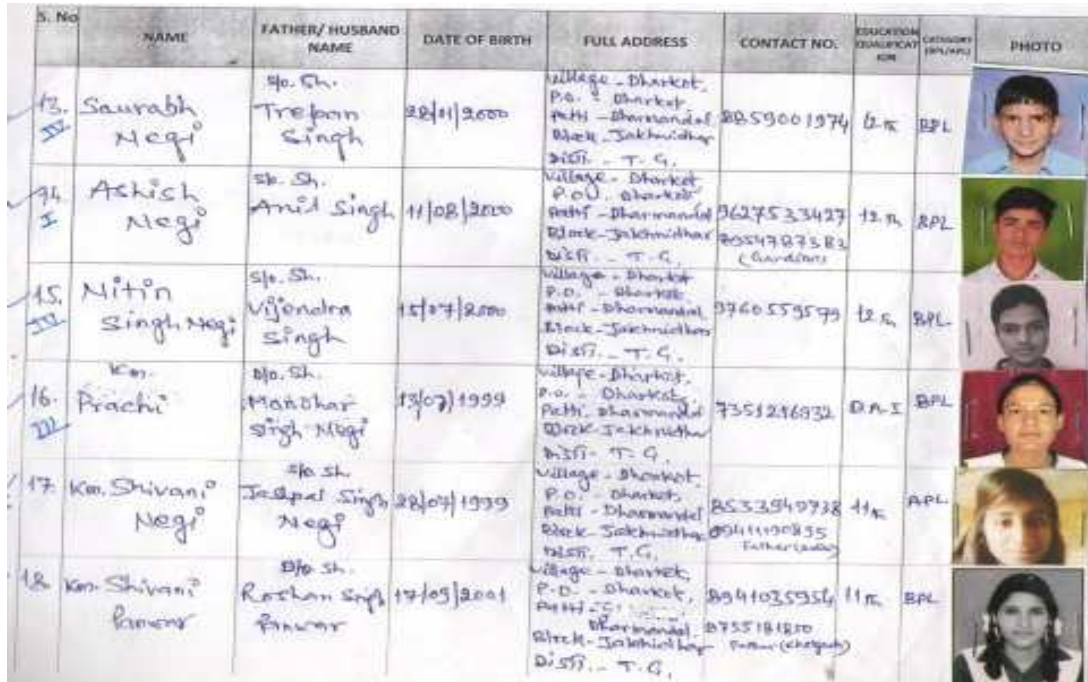 S. No
NAME
FATHER/ HUSBAND
NAME
DATE OF BIRTH
FULL ADDRESS
CONTACT NO.
EDUCATION
QUALIFICAT
ION
CATEGORY
(BPL/APL)
PHOTO
13.
IV
Saurabh
Negi
S/o. Sh.
Trepan
Singh
28/01/2000
Village - Dharkot,
P.O. - Dharkot,
Patti - Dharmandal
Block - Jakhnidhar
Distt. - T.G.
8859001974
12th
BPL
14.
I
Ashish
Negi
S/o. Sh.
Anil Singh
11/08/2000
Village - Dharkot
P.O. Dharkot
Patti - Dharmandal
Block - Jakhnidhar
Distt. - T.G.
9627533427
(Guardian)
12th
BPL
15.
IV
Nitin
Singh Negi
S/o. Sh.
Vijendra
Singh
15/07/2000
Village - Dharkot
P.O. - Dharkot
Patti - Dharmandal
Block - Jakhnidhar
Distt. - T.G.
9760559579
12th
BPL
16.
III
Km.
Prachi
D/o. Sh.
Manohar
Singh Negi
13/07/1999
Village - Dharkot,
P.O. - Dharkot,
Patti - Dharmandal
Block - Jakhnidhar
Distt - T.G.
7351216932
BPL
17.
Km. Shivani
Negi
Sh.
Jashpal Singh
Negi
28/07/1999
Village - Dharkot,
P.O. - Dharkot,
Patti - Dharmandal
Block - Jakhnidhar
Distt. T.G.
8533949738
Father
11th
APL
18.
Km. Shivani
Panwar
D/o Sh.
Roshan Singh
Panwar
17/09/2001
Village - Dharkot,
P.O. - Dharkot,
Patti -
Dharmandal,
Block - Jakhnidhar
Distt. - T.G.
8941035954
8755181850
Father
11th
BPL